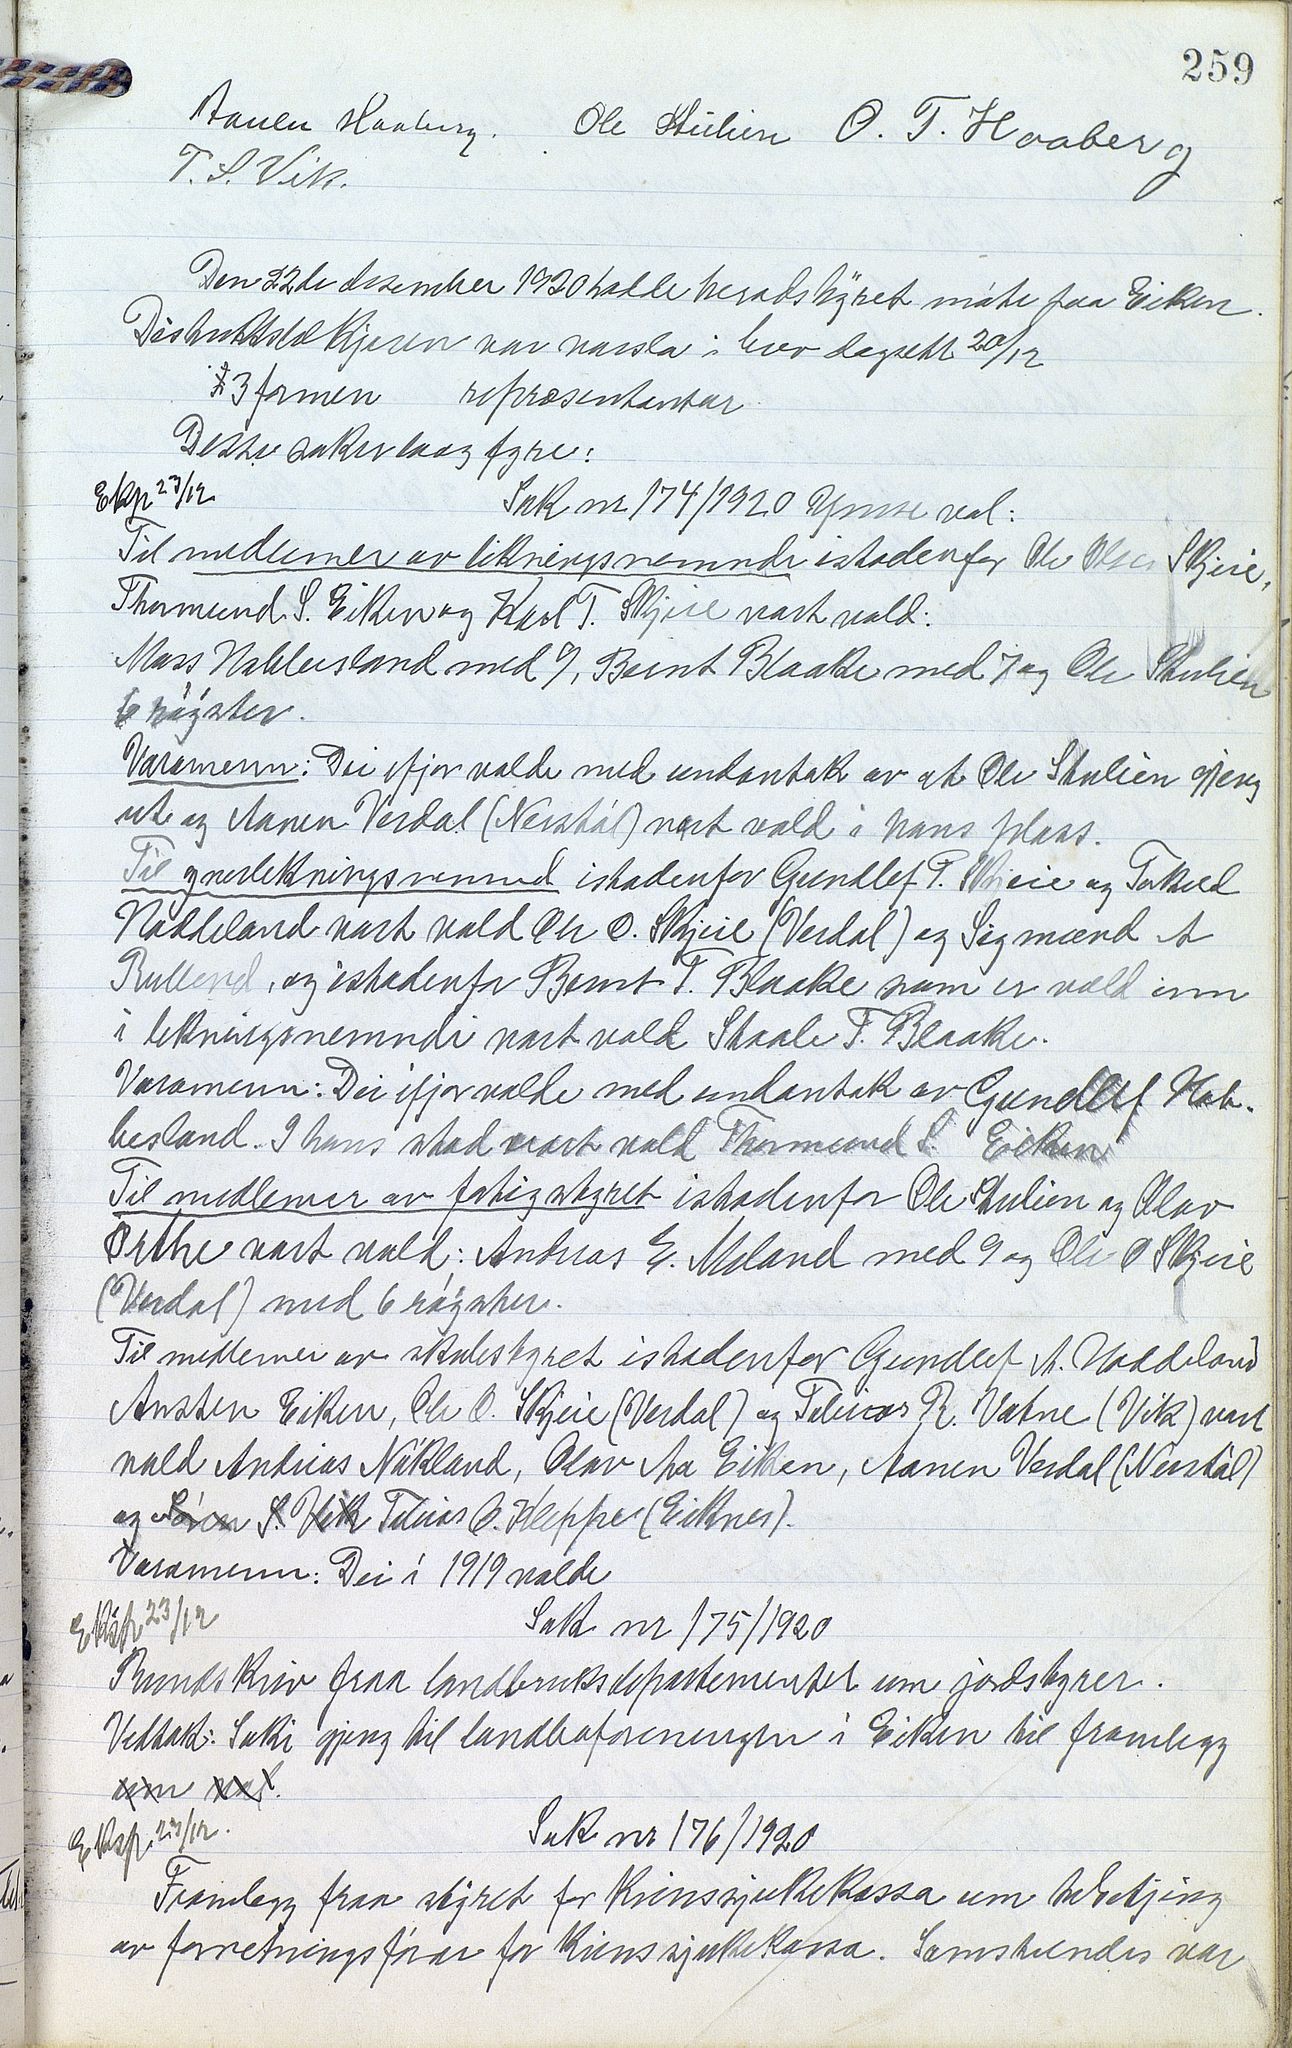 259
Aanen Haaberg. Ole Stulien O. T. Haaberg
T. S. Vik.
Den 22de desember 1920 hadde heradstyret möte paa Eiken.
Distriktslækjaren var varsla i brev dagsett 20/12
13 formen representantar
Desse saker laag fyre:
Eksp 23/12
Sak nr 174/1920 Ymse val:
Til medlemer av likningsnemndi istadenfor Ole Olsen Skjeie,
Thormund S. Eiken og Karl T. Skjeie vart vald:
Mass Hobbesland med 9, Bernt Blaake med 7 og Ole Stulien
6 röyster.
Varamenn: Dei ifjor valde med undantak av at Ole Stulien gjeng
ut og Aanen Verdal (Nerstöl) vart vald i hans plass.
Til yverlikningsnemnd istadenfor Gundlef T. Skjeie og Torkel
Noddeland vart vald Ole O. Skjeie (Verdal) og Sigmund A
Rulland, og istadenfor Bernt T. Blaake som er vald inn
i likningsnemndi vart vald Staale T. Blaake.
Varamenn: Dei ifjor valde med undantak av Gundlef Hob-
besland. I hans stad vart vald Thormund S. Eiken
Til medlemer av fatigstyret istadenfor Ole Stulien og Olav
Ørthe vart vald: Andreas E. Moland med 9 og Ole O Skjeie
(Verdal) med 6 röyster.
Til medlemer av skulestyret istadenfor Gundlef A. Noddeland
Ansten Eiken, Ole O. Skjeie (Verdal) og Tobias R. Vatne (Vik) vart
vald Andreas Nökland, Olav Aa Eiken, Aanen Verdal (Nerstöl)
og Sören S. Vik Tobias O. Kleppe (Eiknes).
Varamenn: Dei i 1919 valde
Eksp 23/12
Sak nr 175/1920
Rundskriv fraa landbruksdepartementet um jordstyrer.
Vedtak: Saki gjeng til landboforeningen i Eiken til framlegg
um val.
Eksp. 23/12.
Sak nr 176/1920
Framlegg fraa styret for Krinssjukekassa um
av forretningsförar for Krinssjukekassa. Samstundes var